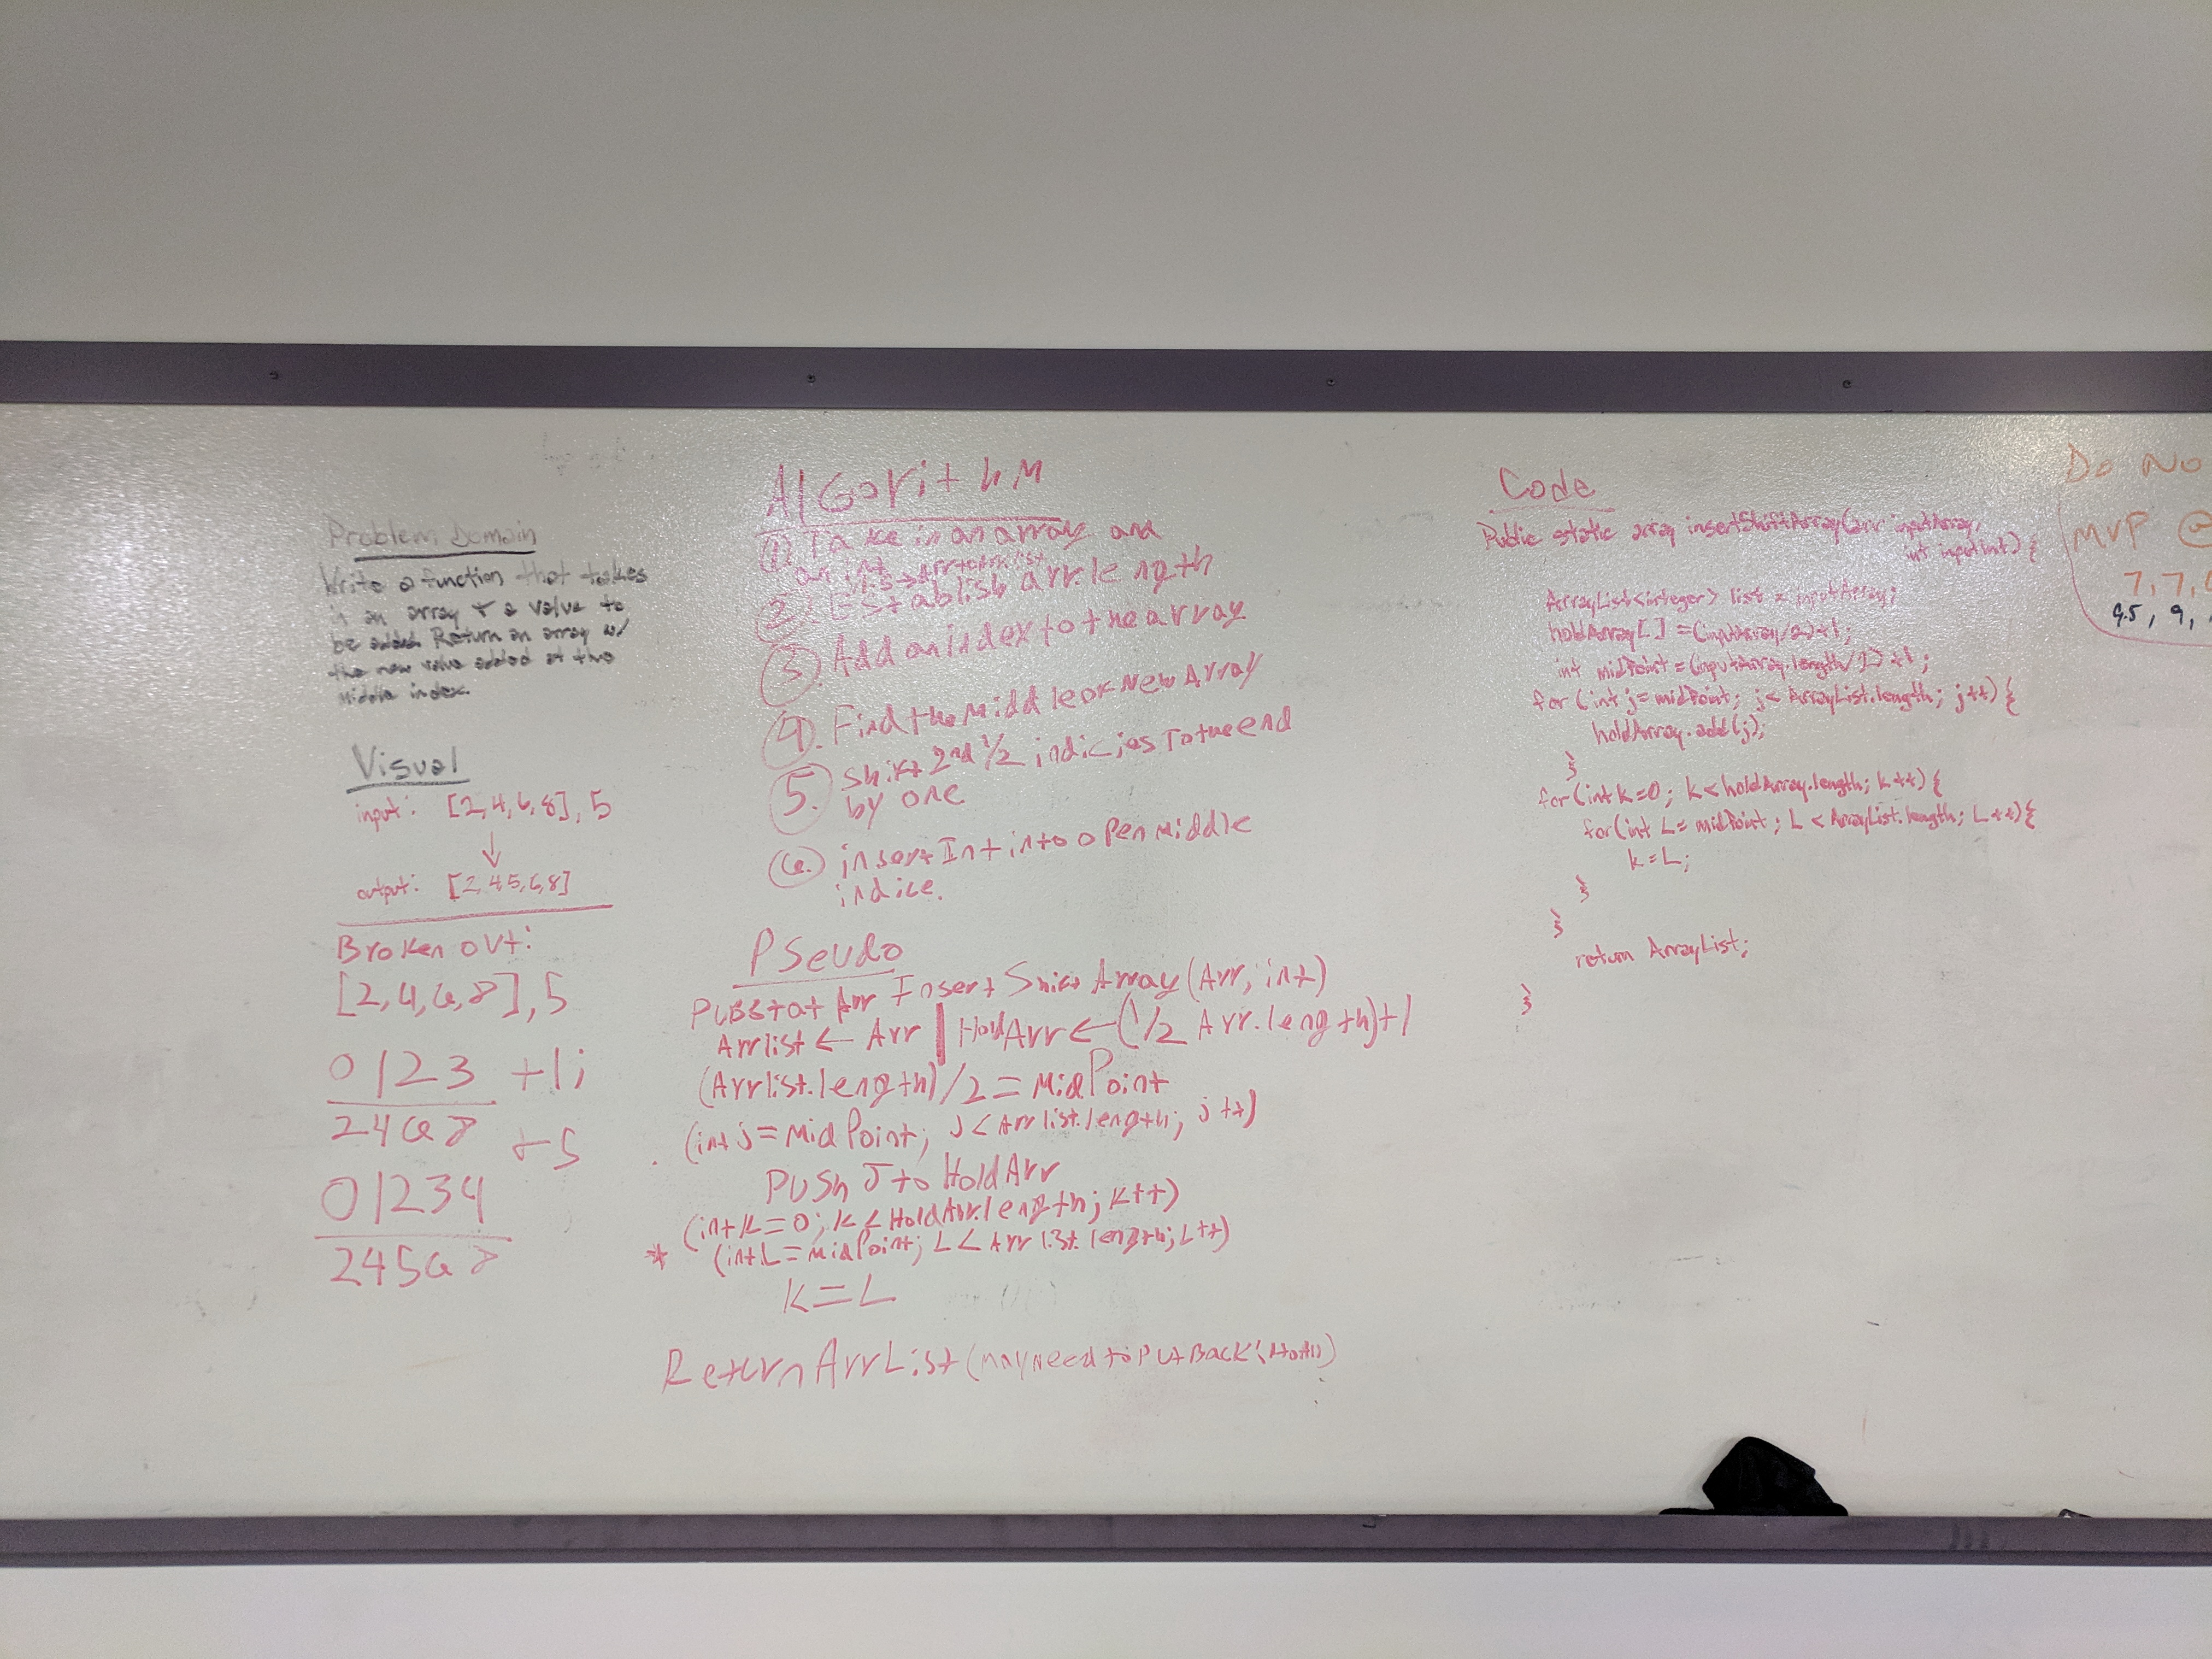 Problem Domain
Write a function that takes
in an array & a value to
be added. Return an array w/
the new value added at the
middle index.
Visual
input: [2,4,6,8], 5
↓
output: [2,4,5,6,8]
Broken out:
[2,4,6,8],5
0123 +1i
2468 +5
01234
24568
AlGorithM
1. Take in an array and
an int
2. Establish arr.length
3. Add an index to the array
4. Find the Middle of New Array
5. Shift 2nd 1/2 indicies To the end
by one
6. insert Int into open Middle
indice.
PSeudo
PUBStat Arr Insert Shift Array (Arr, int)
Arrlist ← Arr | HoldArr ← (1/2 Arr.length)+1
(Arrlist.length)/2 = MidPoint
(int j = MidPoint; J < Arrlist.length; j++)
PUSh J to HoldArr
(int K=0; K < HoldArr.length; K++)
* (int L = MidPoint; L < Arrlist.length; L++)
K = L
Return ArrList (may need to Put Back
Code
Public static array insertShiftArray(arr inputArray,
int inputInt) {
ArrayList<integer> list = inputArray;
holdArray[] = (inputArray/2)+1;
int midPoint = (inputArray.length/2)+1;
for (int j = midPoint; j < ArrayList.length; j++) {
holdArray.add(j);
}
for (int k=0; k < holdArray.length; k++) {
for (int L = midPoint; L < ArrayList.length; L++) {
k = L;
}
}
return ArrayList;
}
Do No
MVP @
7, 7,
9.5, 9,